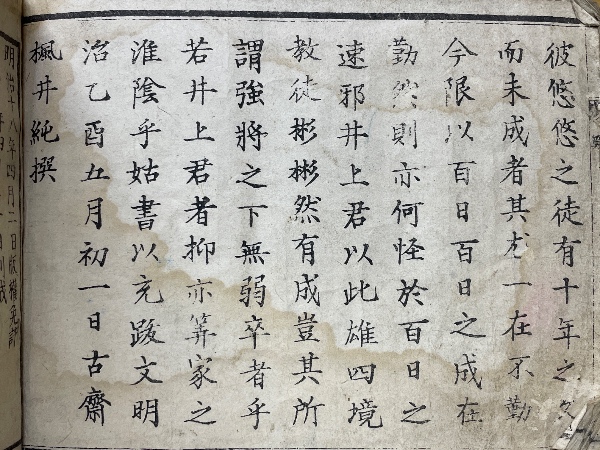 彼悠悠之徒有十年之久
而未成者其尤一在不勤
今限以百日百日之成在
勤然則亦何怪於百日之
速邪井上君以此雄四境
教徒彬彬然有成豈其所
謂強將之下無弱卒者乎
若井上君者抑亦筭家之
淮陰乎姑書以充跋文明
治乙酉五月初一日古齋
楓井純撰
明治十八年四月二日版權免許